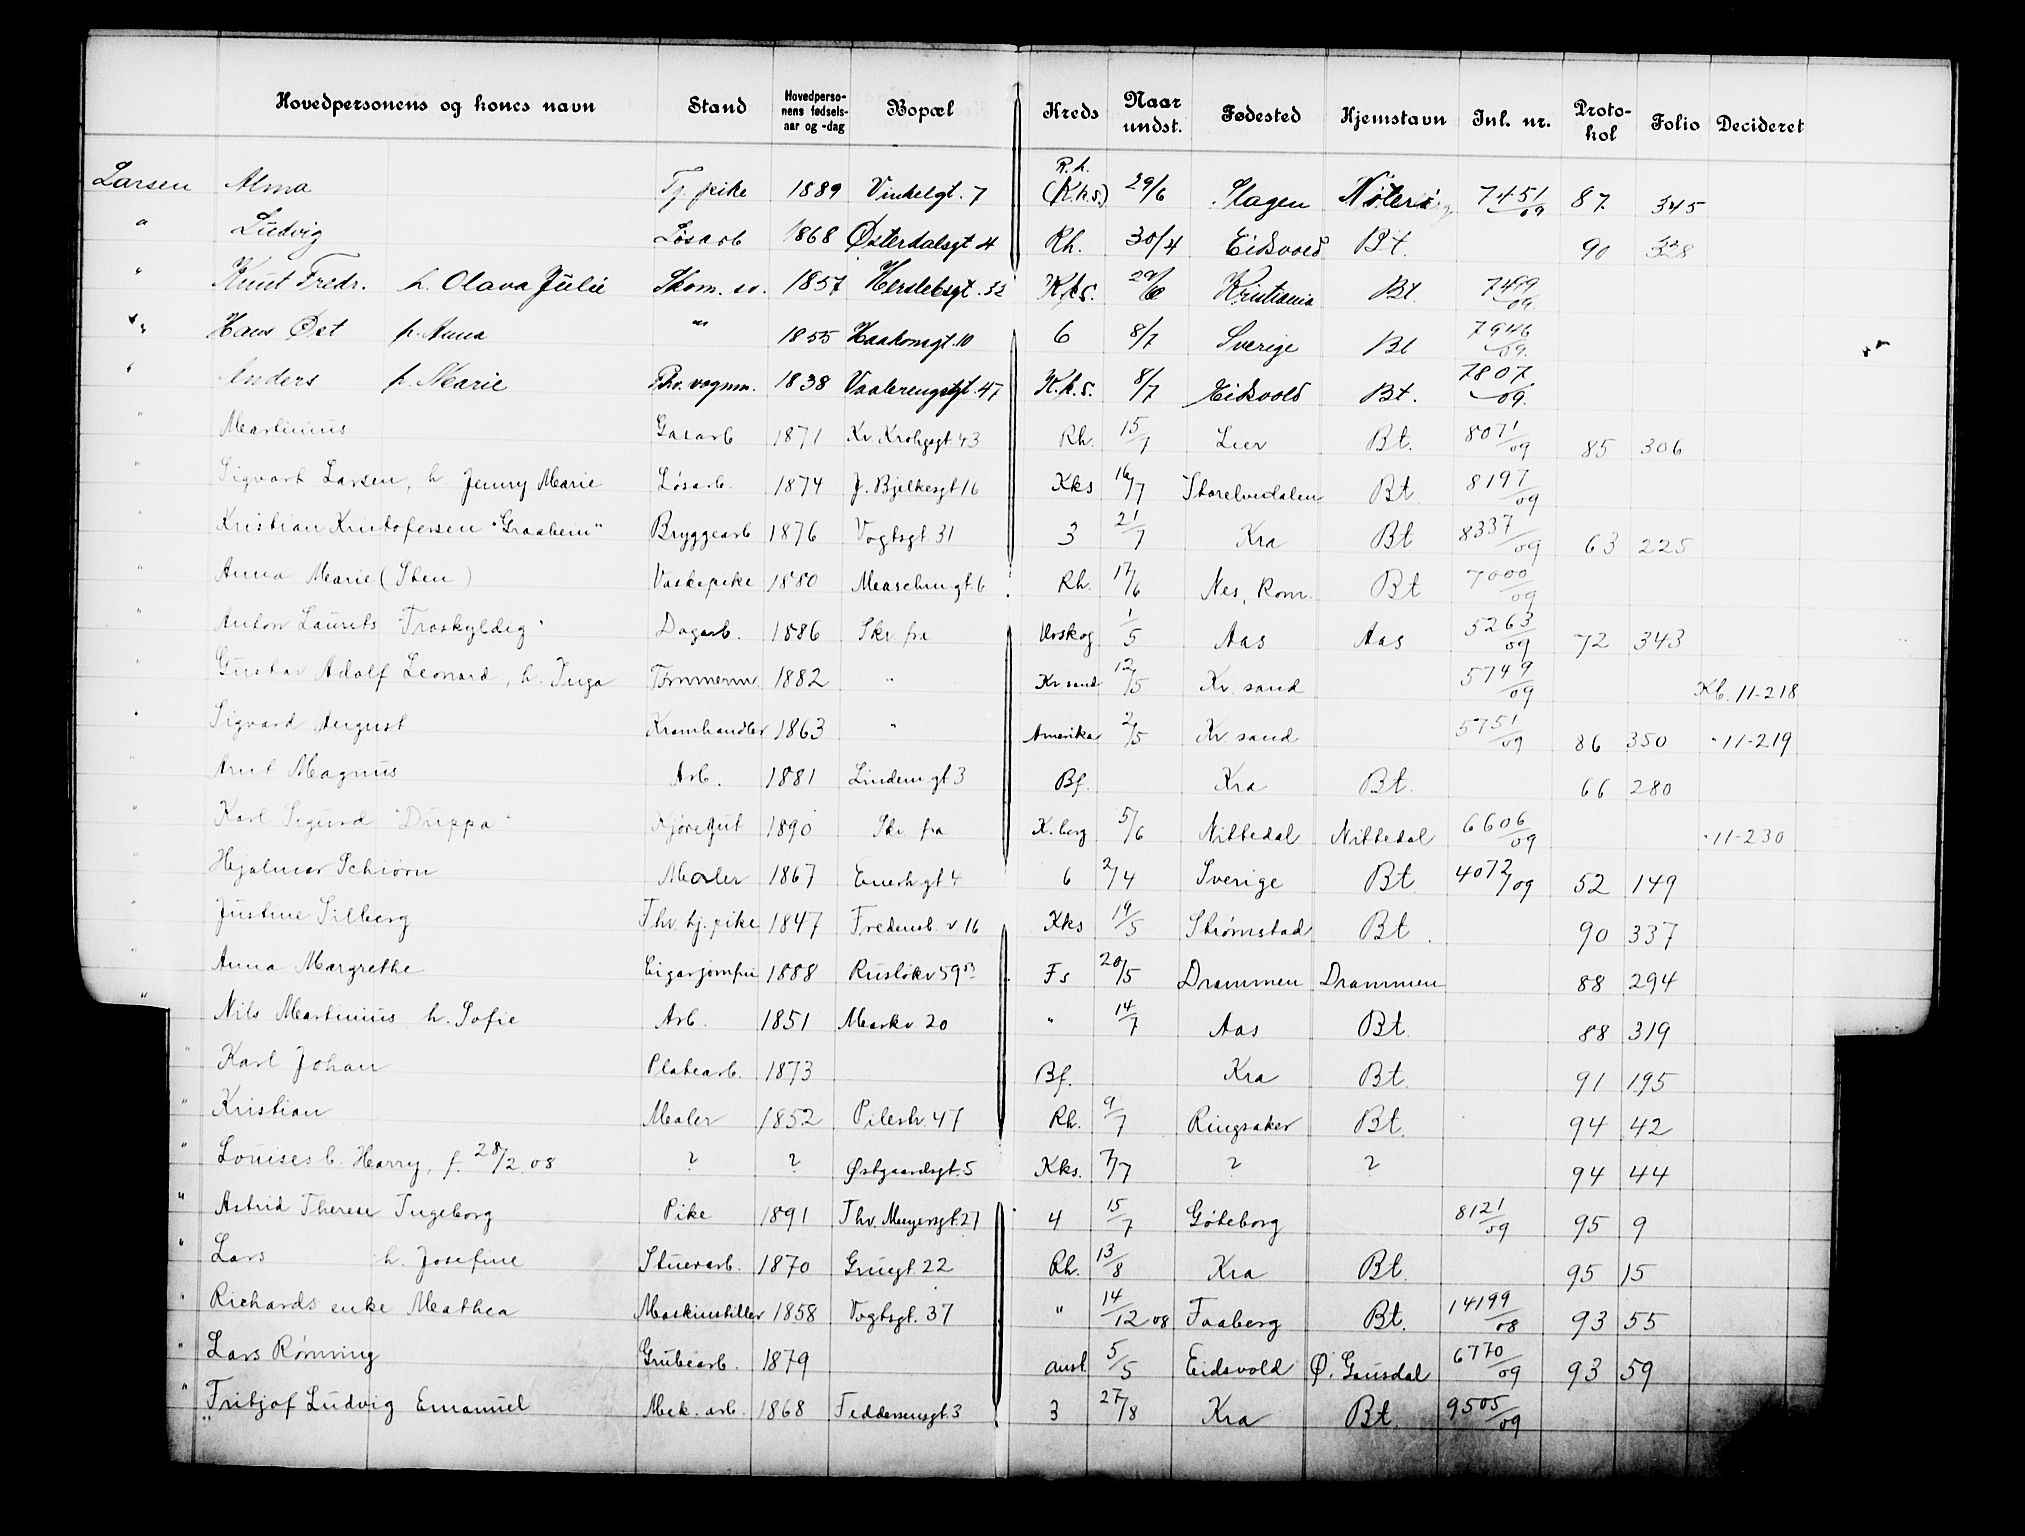 Hovedpersonens og kones navn Stand Hovedperso-nens fødsels-aar og -dag Bopæl Kreds Naar undst. Fødested Hjemstavn Inl. nr. Proto-kol Folio Decideret
Larsen Alma Tj. pike 1889 Vinkelgt. 7 R.h. (K.k.s.) 29/6 Slagen Nøterø 7451/09 87. 345
" Ludvig Løsarb 1868 Østerdalsgt 4 Rh. 30/4 Eidsvold Bt. 90 328
" Knut Fredr. h. Olava Julie Skom. sv. 1857 Herslebsgt. 32 K.k.s. 29/6 Kristiania Bt. 7499/09.
" Hans Øst h. Anna " 1855 Haakonsgt. 10 6 8/7 Sverige Bt 7946/09.
" Anders h. Marie Fhv. vognm. 1838 Vaalerengsgt. 47 K.k.s. 8/7 Eidsvold Bt. 7807/09.
" Martinius Gasarb 1871 Kr Krohgsgt 43 Rh. 15/7 Lier Bt. 8071/09 85 306
" Sigvart Larsen, h Jenny Marie Løsarb. 1874 J. Bjelkesgt 16 Kks 16/7 Storelvedalen Bt 8197/09
" Kristian Kristofersen "Graabein" Bryggearb 1876 Vogtsgt 31 3 21/7 Kra Bt 8337/09 63 225
" Anna Marie (Sten) Vaskepike 1880 Maschmgt. 6 Rh. 17/6 Nes, Rom. Bt 7000/09
" Anton Laurits "Troskyldig" Dagarb. 1886 Skr. fra Urskog 1/5 Aas Aas 5263/09 72 343
" Gustav Adolf Leonard, h. Inga Tømmerm. 1882 " Kr sand 12/5 Kr. sand 5749/09 Kb. 11-218
" Sigvard August Kramhandler 1863 " Amerika 2/5 Kr. sand 5751/09 86 350 " 11-219
" Arnt Magnus Arb. 1881 Lindemgt 3 Bf. Kra Bt. 66 280
" Karl Sigurd "Duppa" Kjøregut 1890 Skr. fra K. berg 5/6 Nittedal Nittedal 6606/09 " 11-230
" Hjalmar Schiörn Maler 1867 Enerhgt 4 6 2/4 Sverige Bt 4072/09 52 149
" Justine Silberg Fhv. tj. pike 1847 Fredensb. v 16 Kks 19/5 Strømstad Bt. 90 337
" Anna Margrethe Cigarjomfru 1888 Rusløkv 59 B Fs 20/5 Drammen Drammen 88 294
" Nils Martinius, h. Sofie Arb. 1851 Markv 20 " 14/7 Aas Bt. 88 319
" Karl Johan Platearb. 1873 Bf. Kra Bt. 91 195
" Kristian Maler 1852 Pilestr 47 Rh. 9/7 Ringsaker Bt. 94 42
" Louises b. Harry, f. 28/2 08 ? ? Østgaardsgt. 5 Kks. 7/7 ? ? 94 44
" Astrid Therese Ingeborg Pike 1891 Thv. Meyersgt. 27 4 15/7 Göteborg 8121/09 95 9
" Lars h. Josefine Stuerarb. 1870 Grugt. 22 Rh. 13/8 Kra Bt. 95 15
" Richards enke Mathea Maskinstiller 1858 Vogtsgt. 37 " 14/12 08 Faaberg Bt. 14199/08 93 55
" Lars Rønning Grubearb. 1879 anst. 5/5 Eidsvold Ø. Gausdal 6770/09 93 59
" Fritjof Ludvig Emanuel Mek. arb. 1868 Feddersensgt. 3 3 27/8 Kra Bt. 9505/09
"